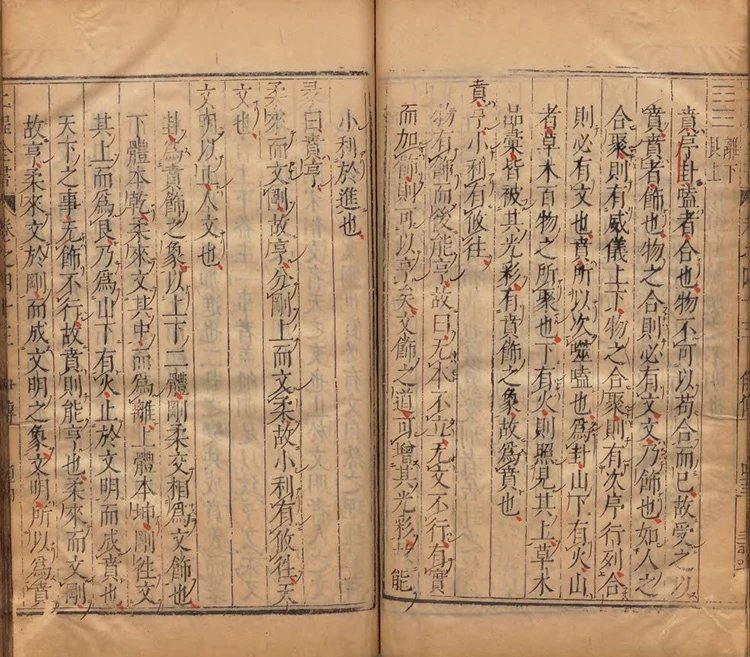 離下
艮上
賁序卦嗑者合也物不可以苟合而已故受之以
賁賁者飾也物之合則必有文文乃飾也如人之
合聚則有威儀上下物之合聚則有次序行列合
則必有文也賁所以次噬嗑也爲卦山下有火山
者草木百物之所聚也下有火則照見其上草木
品彙皆被其光彩有賁飾之象故爲賁也
賁亨小利有攸往
物有飾而後能亨故曰无本不立无文不行有實
而加飾則可以亨矣文飾之道可增其光彩故能
小利於進也
彖曰賁亨
柔來而文剛故亨分剛上而文柔故小利有攸往天
文也
文明以止人文也
卦爲賁飾之象以上下二體剛柔交相爲文飾也
下體本乾柔來文其中而爲離上體本坤剛往文
其上而爲艮乃爲山下有火止於文明而成賁也
天下之事无飾不行故賁則能亨也柔來而文剛
故亨柔來文於剛而成文明之象文明所以爲賁
二程全書